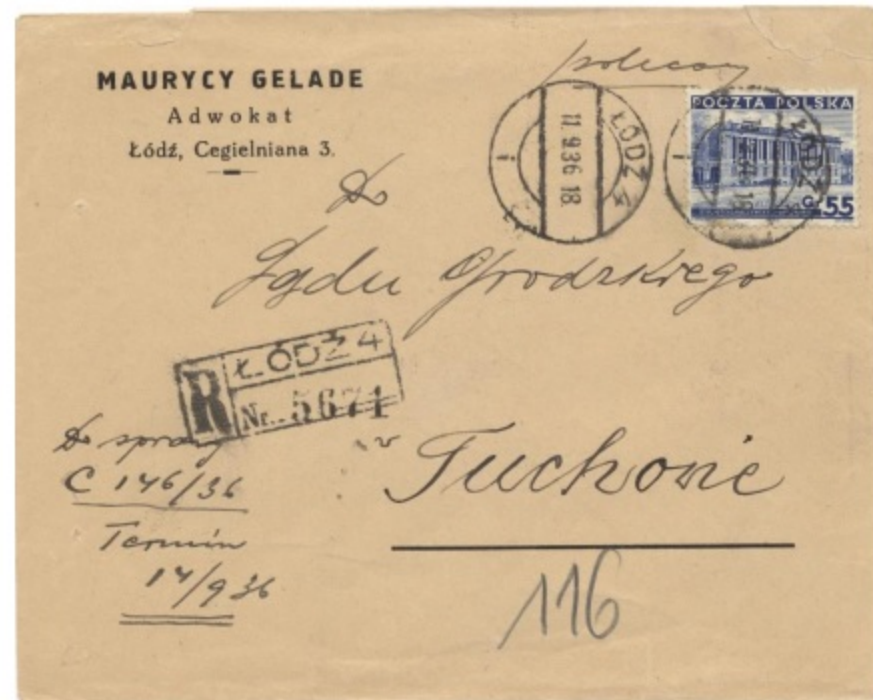 MAURYCY GELADE
Adwokat
Łódź, Cegielniana 3.
polecony
ŁÓDŹ 4
11.9.36 18
POCZTA POLSKA
Gr. 55
Do
Sądu Grodzkiego
R ŁÓDŹ 4
Nr. 5671
w
Tuchowie
Do sprawy
C 146/36
Termin
14/9 36
116